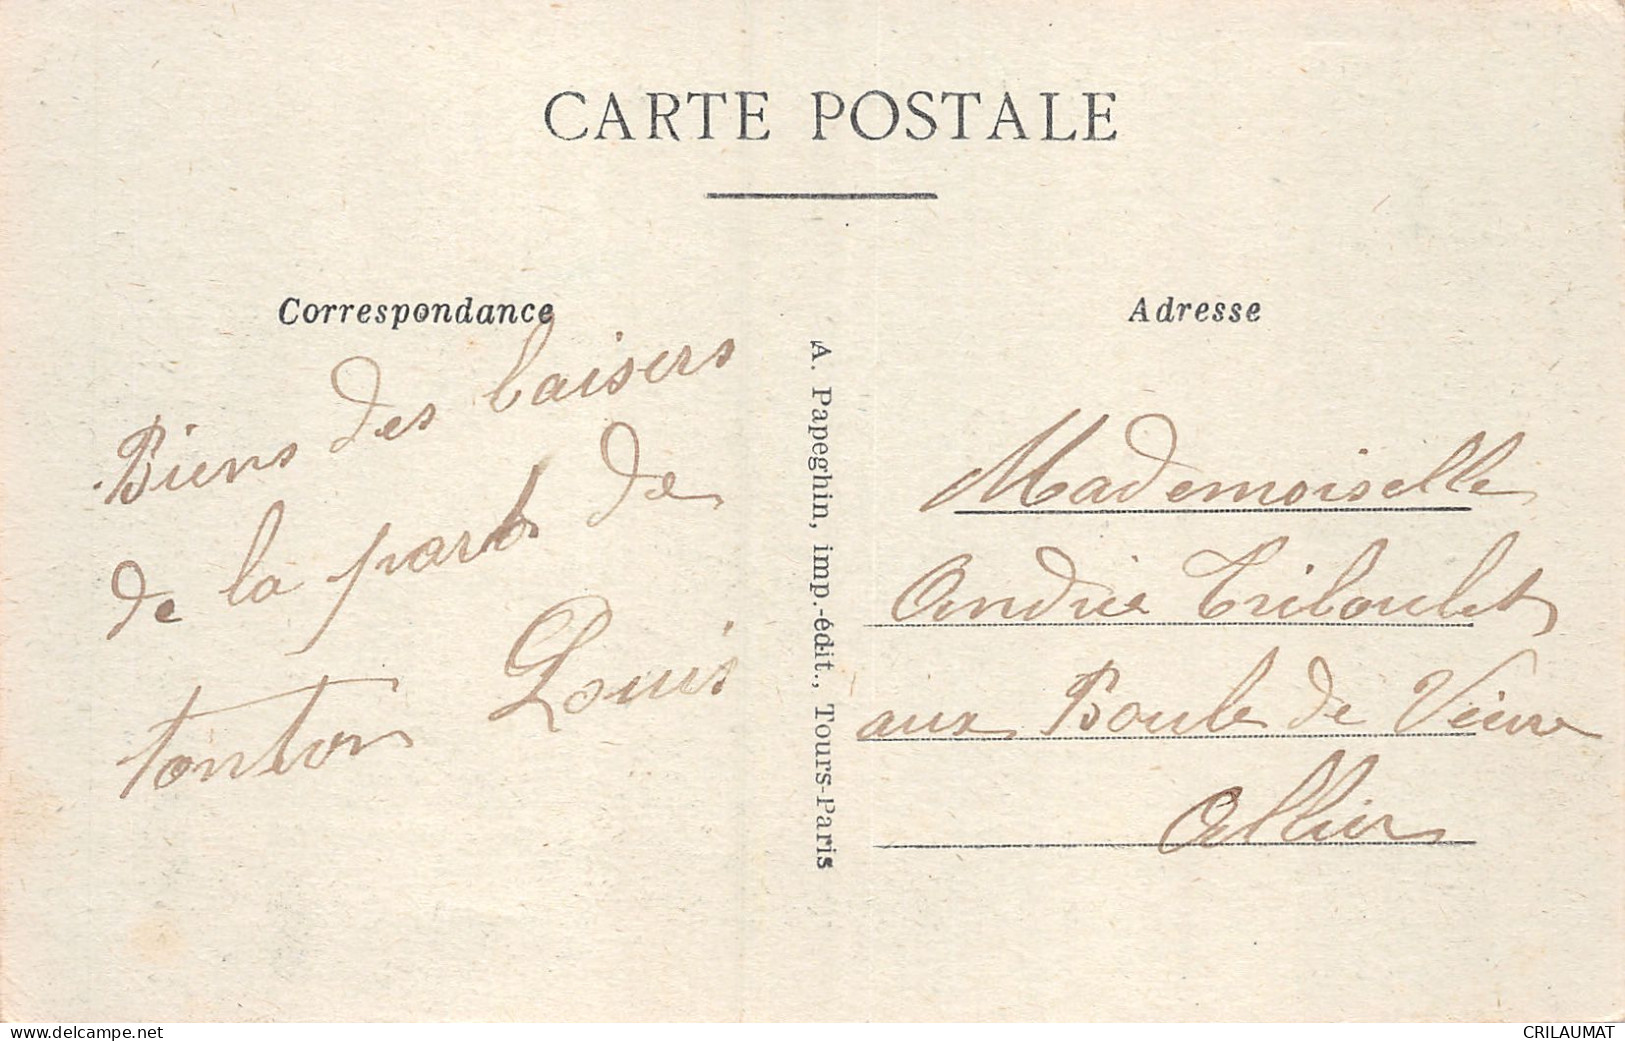 CARTE POSTALE
Correspondance
Biens des baisers
de la part de
tonton Louis
A. Papeghin, imp.-édit., Tours-Paris
Adresse
Mademoiselle
Andrée Triboulet
aux Boule de Vieure
Allier
www.delcampe.net
CRILAUMAT